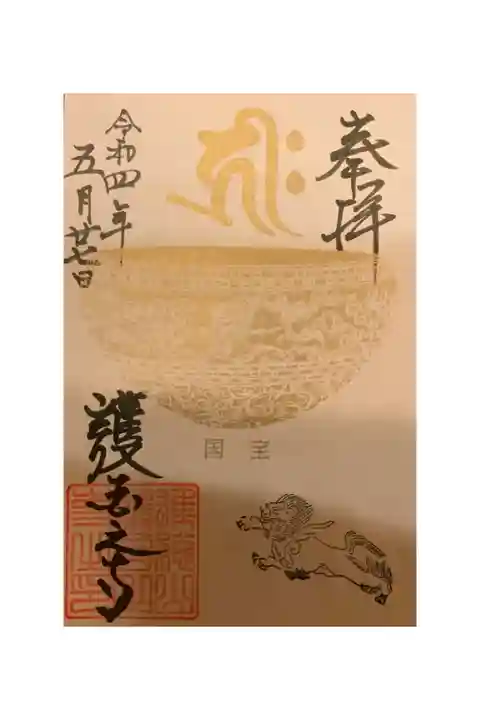 奉拝
国宝
令和四年
五月廿七日
護国之寺